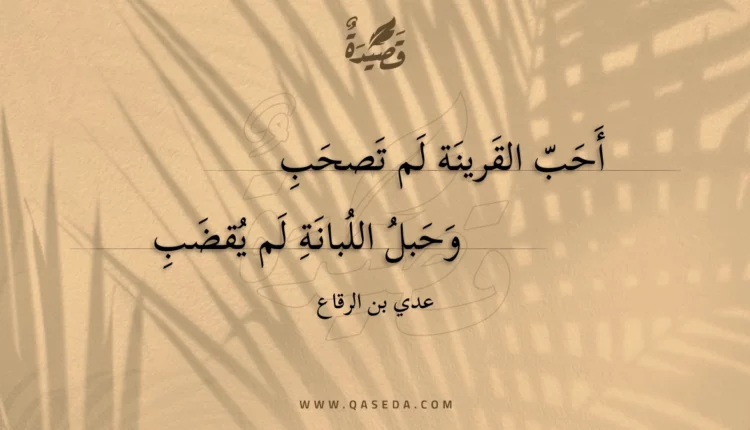 قَصِيدَةٌ
أَحَبّ القَرينَة لَم تَصحَبِ
وَحَبلُ اللُبانَةِ لَم يُقضَبِ
عدي بن الرقاع
WWW.QASEDA.COM